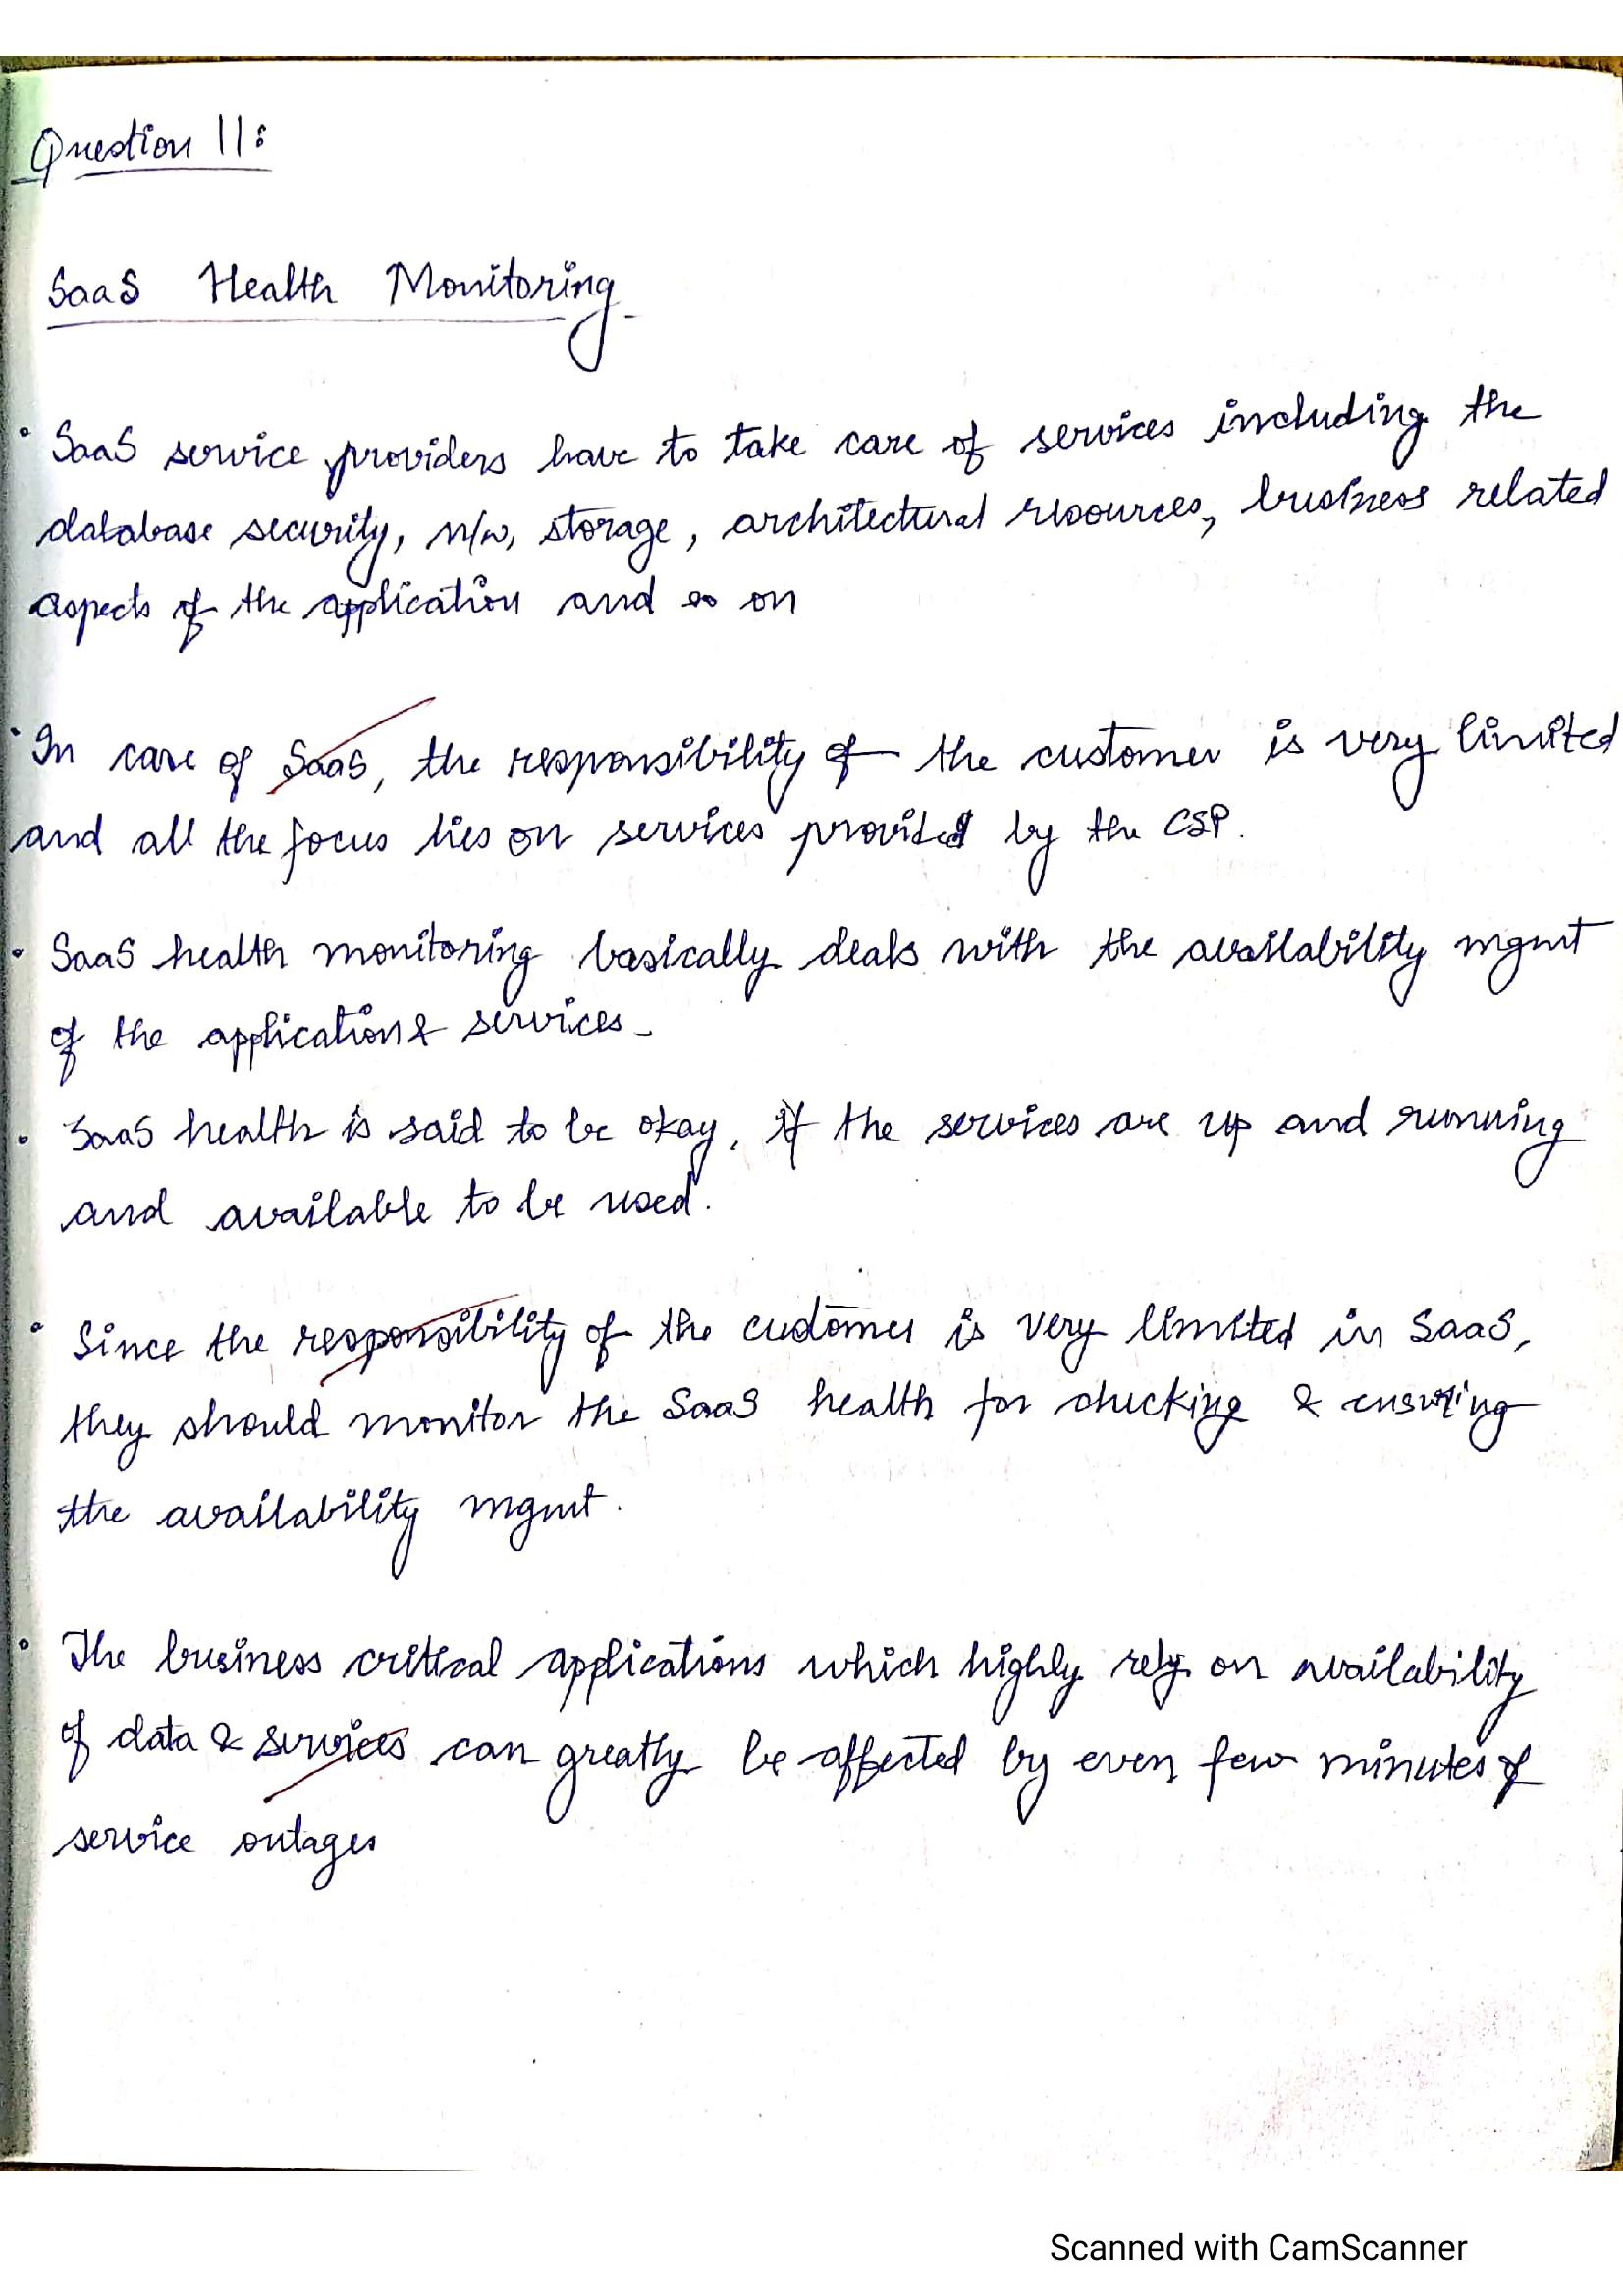 Question 11:
SaaS Health Monitoring
• SaaS service providers have to take care of services including the
database security, n/w, storage, architectural resources, business related
aspects of the application and so on
• In case of SaaS, the responsibility of the customer is very limited
and all the focus lies on services provided by the CSP.
• SaaS health monitoring basically deals with the availability mgmt
of the application & services.
• SaaS health is said to be okay, if the services are up and running
and available to be used.
• Since the responsibility of the customer is very limited in SaaS,
they should monitor the SaaS health for checking & ensuring
the availability mgmt.
• The business critical applications which highly rely on availability
of data & services can greatly be affected by even few minutes of
service outages
Scanned with CamScanner